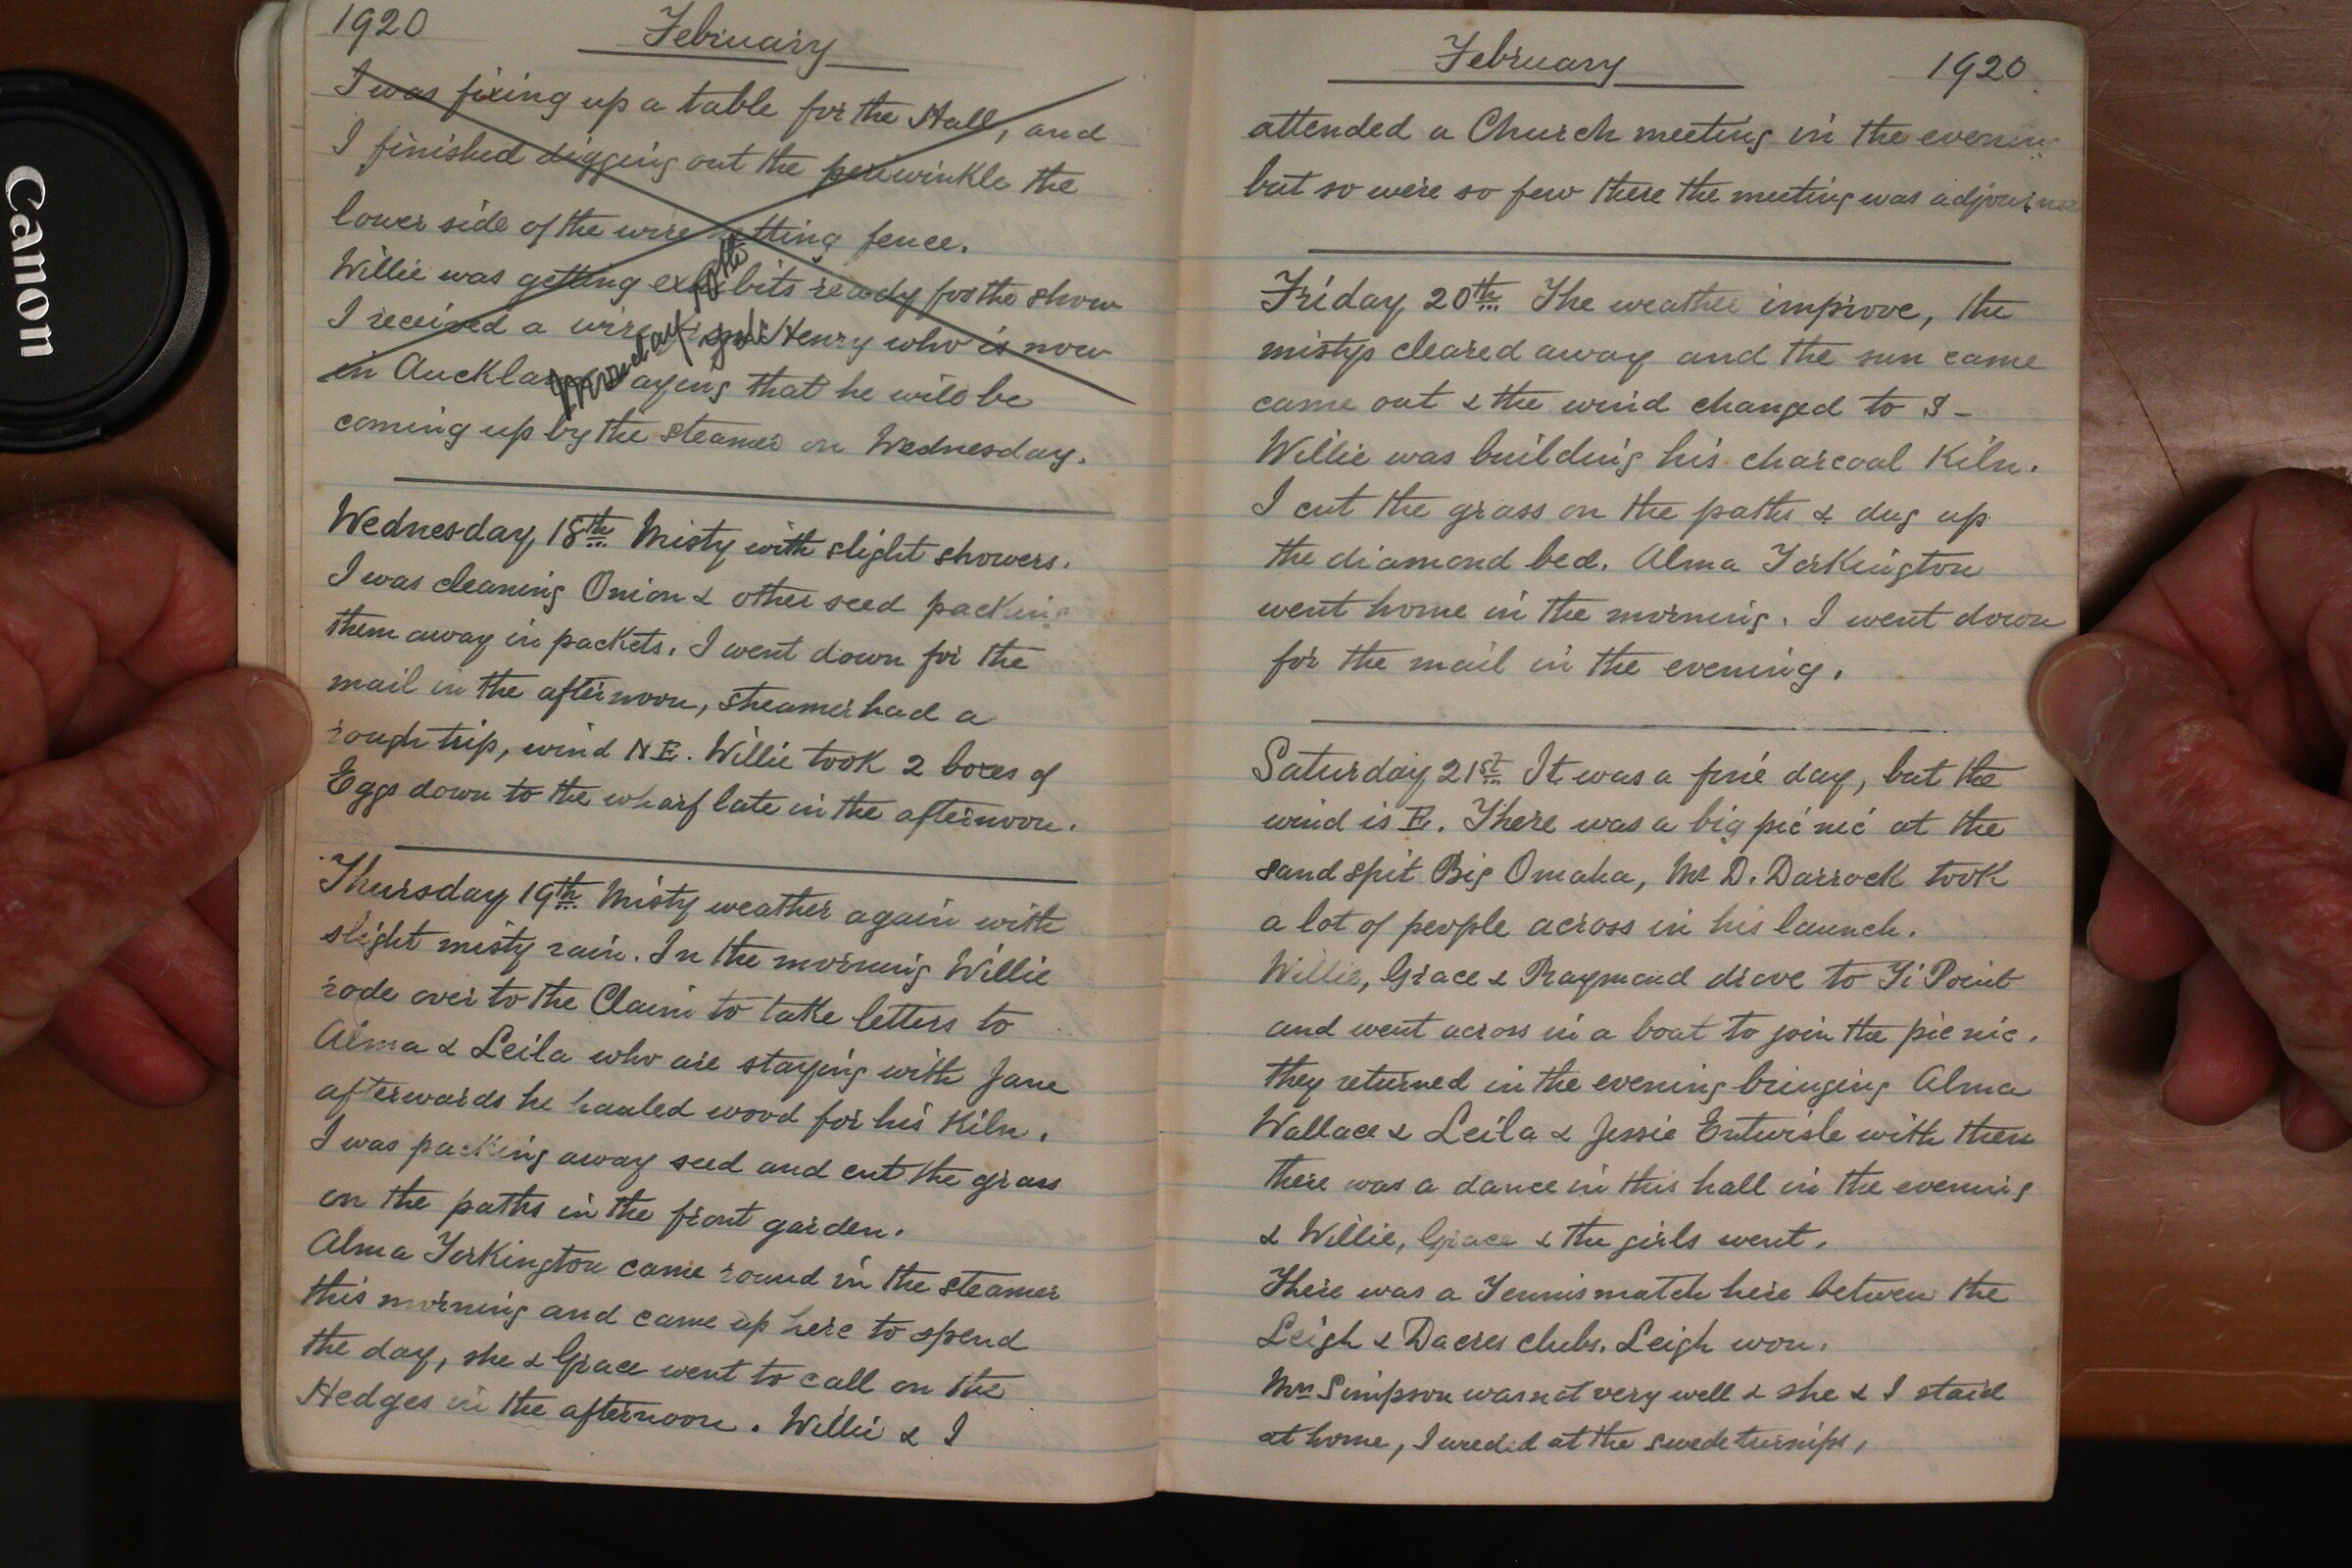 Canon
1920 February
I was fixing up a table for the Hall, and
I finished digging out the periwinkle the
lower side of the wire netting fence.
Willie was getting exhibits ready for the show
I received a wire from Henry who is now
in Auckland saying that he will be
coming up by the steamer on Wednesday.
Monday
Wednesday, 18th Misty with slight showers.
I was cleaning Onion & other seed packing
them away in packets. I went down for the
mail in the afternoon, steamer had a
rough trip, wind N E. Willie took 2 boxes of
Eggs down to the wharf late in the afternoon.
Thursday 19th Misty weather again with
slight misty rain. In the morning Willie
rode over to the Claim to take letters to
Alma & Leila who are staying with Jane
afterwards he hauled wood for his Kiln.
I was packing away seed and cut the grass
on the paths in the front garden.
Alma Torkington came round in the steamer
this morning and came up here to spend
the day, she & Grace went to call on the
Hedges in the afternoon. Willie & I
February 1920
attended a Church meeting in the evening
but so were so few there the meeting was adjourned
Friday 20th The weather improve, the
mistys cleared away and the sun came
came out & the wind changed to S -
Willie was building his charcoal Kiln.
I cut the grass on the paths & dug up
the diamond bed. Alma Torkington
went home in the morning. I went down
for the mail in the evening.
Saturday 21st It was a fine day, but the
wind is E. There was a big pic nic at the
sand spit Big Omaha, Mr D. Darrock took
a lot of people across in his launch.
Willie, Grace & Raymond drove to Ti Point
and went across in a boat to join the pic nic.
they returned in the evening bringing Alma
Wallace & Leila & Jessie Entwisle with them
there was a dance in this hall in the evening
& Willie, Grace & the girls went.
There was a Tennis match here between the
Leigh & Dacres clubs. Leigh won.
Mrs Simpson was not very well & she & I staid
at home, I weeded at the swede turnips,